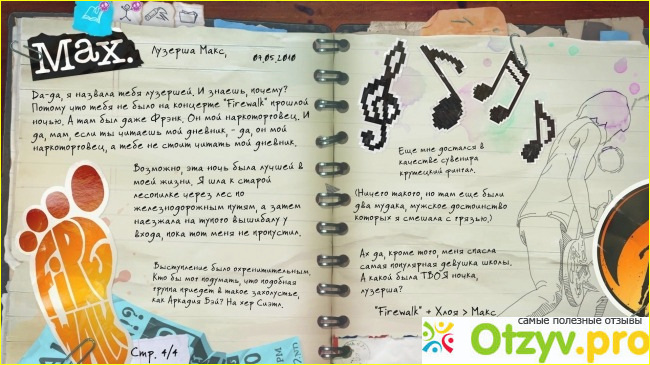 Max.
Лузерша Макс,
09.05.2010
Да-да, я назвала тебя лузершей. И знаешь, почему?
Потому что тебя не было на концерте "Firewalk" прошлой
ночью. А там был даже Фрэнк. Он мой наркоторговец. И
да, мам, если ты читаешь мой дневник, - да, он мой
наркоторговец, а тебе не стоит читать мой дневник.
Возможно, эта ночь была лучшей в
моей жизни. Я шла к старой
лесопилке через лес по
железнодорожным путям, а затем
наезжала на тупого вышибалу у
входа, пока тот меня не пропустил.
Выступление было охренительным.
Кто бы мог подумать, что подобная
группа приедет в такое захолустье,
как Аркадия Бэй? На хер Сиэтл.
FIRE
WALK
Стр. 4/4
Еще мне достался в
качестве сувенира
крутецкий фингал.
(Ничего такого, но там еще были
два мудака, мужское достоинство
которых я смешала с грязью.)
Ах да, кроме того, меня спасла
самая популярная девушка школы.
А какой была ТВОЯ ночка,
лузерша?
"Firewalk" + Хлоя > Макс
самые полезные отзывы
Otzyv.pro